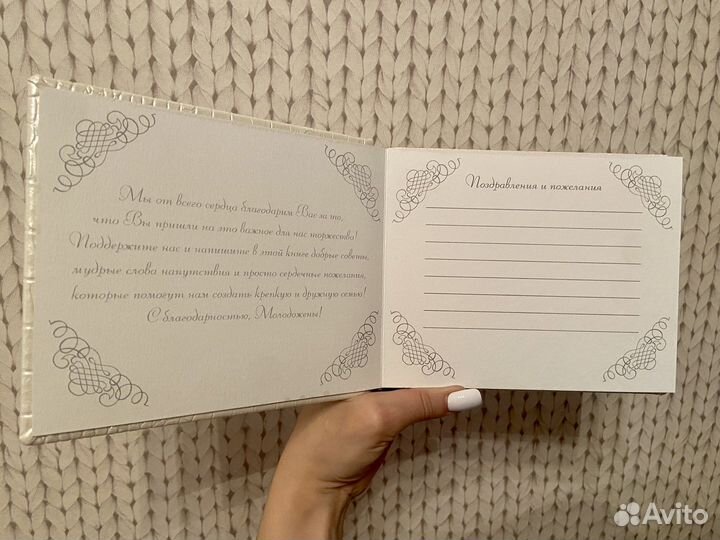 Мы от всего сердца благодарим Вас за то,
что Вы пришли на это важное для нас торжество!
Поддержите нас и напишите в этой книге добрые советы,
мудрые слова напутствия и просто сердечные пожелания,
которые помогут нам создать крепкую и дружную семью!
С благодарностью, Молодожены!
Поздравления и пожелания
Avito